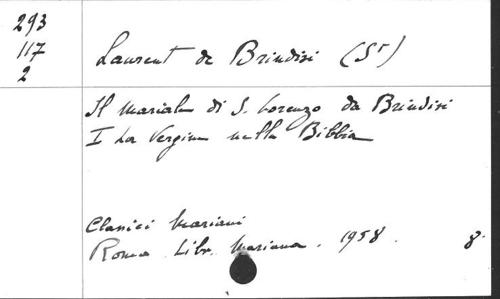 293
117
2
Laurent de Brindisi (St)
Il mariale di S. Lorenzo da Brindisi
I La Vergine nella Bibbia
Classici Mariani
Roma. Libr. Mariana. 1958. 8.